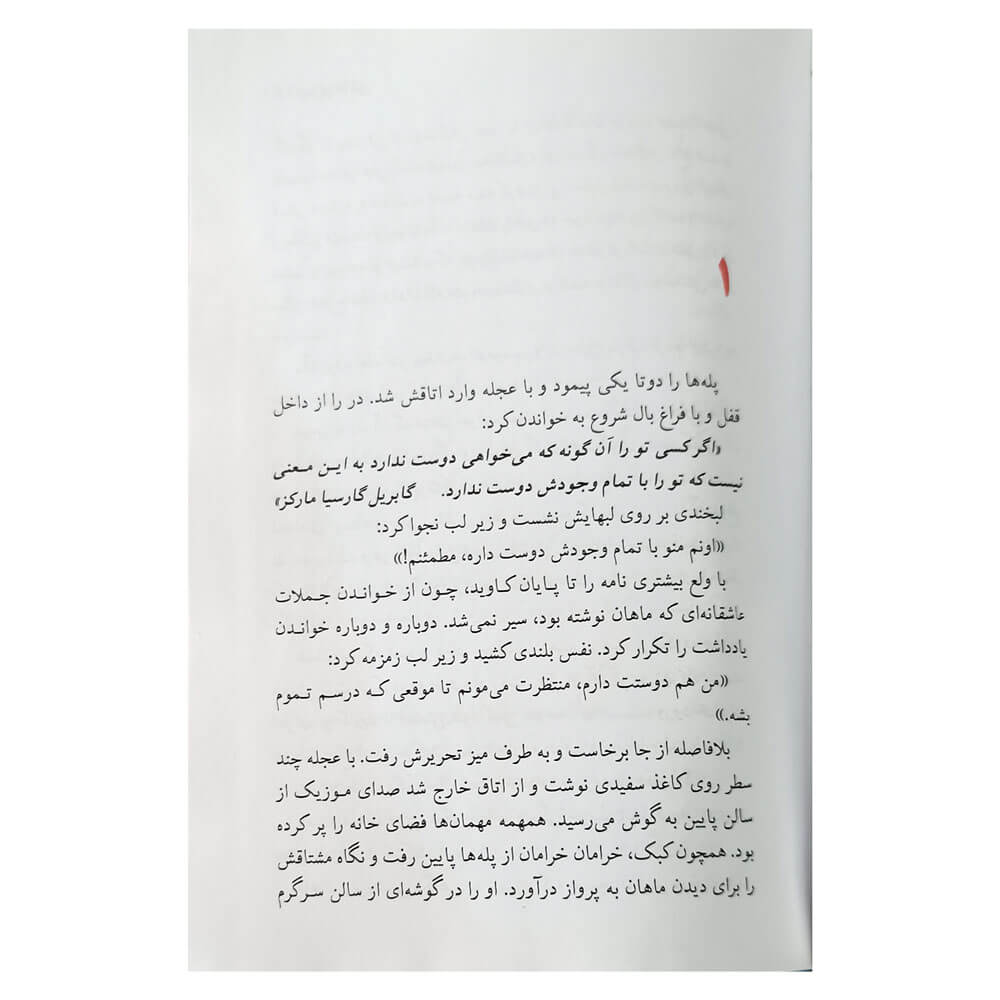 ۱
پله‌ها را دوتا یکی پیمود و با عجله وارد اتاقش شد. در را از داخل
قفل و با فراغ بال شروع به خواندن کرد:
«اگر کسی تو را آن گونه که می‌خواهی دوست ندارد به این معنی
نیست که تو را با تمام وجودش دوست ندارد. گابریل گارسیا مارکز»
لبخندی بر روی لبهایش نشست و زیر لب نجوا کرد:
«اونم منو با تمام وجودش دوست داره، مطمئنم!»
با ولع بیشتری نامه را تا پایان کاوید، چون از خواندن جملات
عاشقانه‌ای که ماهان نوشته بود، سیر نمی‌شد. دوباره و دوباره خواندن
یادداشت را تکرار کرد. نفس بلندی کشید و زیر لب زمزمه کرد:
«من هم دوستت دارم، منتظرت می‌مونم تا موقعی که درسم تموم
بشه.»
بلافاصله از جا برخاست و به طرف میز تحریرش رفت. با عجله چند
سطر روی کاغذ سفیدی نوشت و از اتاق خارج شد صدای موزیک از
سالن پایین به گوش می‌رسید. همهمه مهمان‌ها فضای خانه را پر کرده
بود. همچون کبک، خرامان خرامان از پله‌ها پایین رفت و نگاه مشتاقش
را برای دیدن ماهان به پرواز درآورد. او را در گوشه‌ای از سالن سرگرم